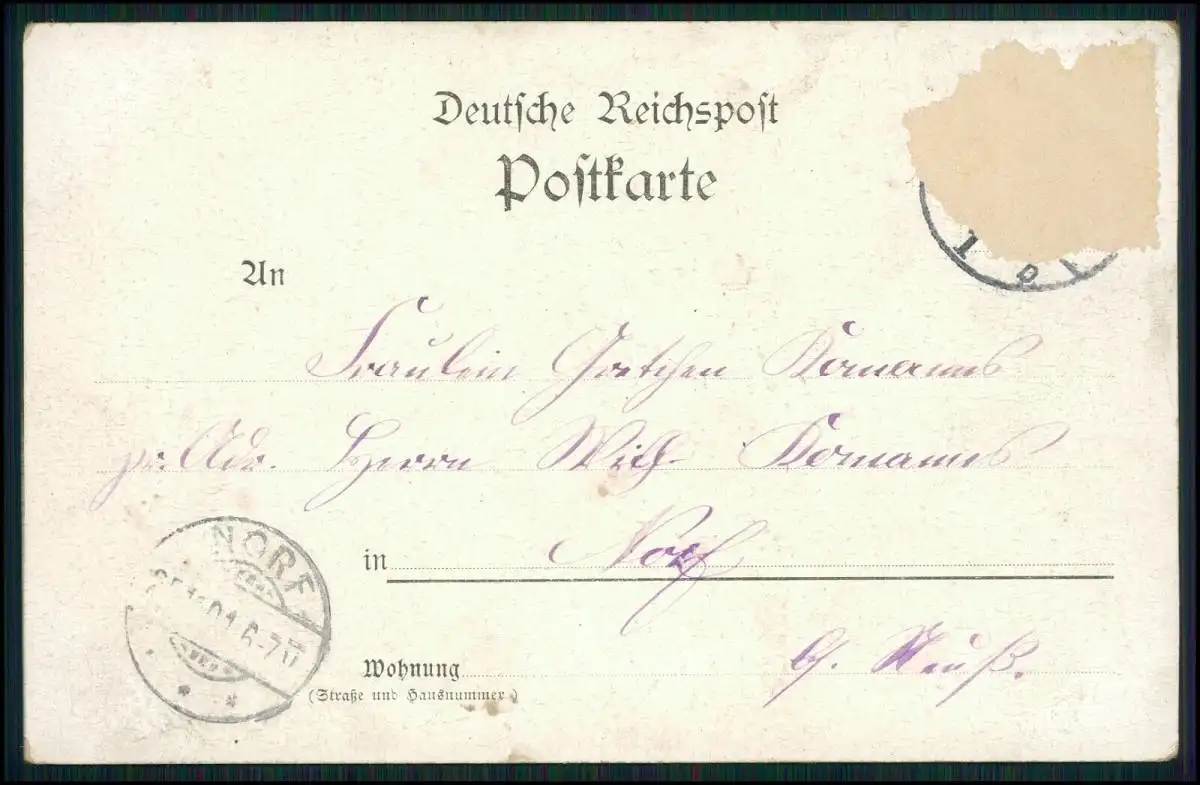 Deutsche Reichspost
Postkarte
An
Fräulein Gretchen Komanns
pr. Adr. Herrn Wilh. Komanns
in Norf
b/. Neuß.
Wohnung
(Straße und Hausnummer)
NORF
.01.6-7N